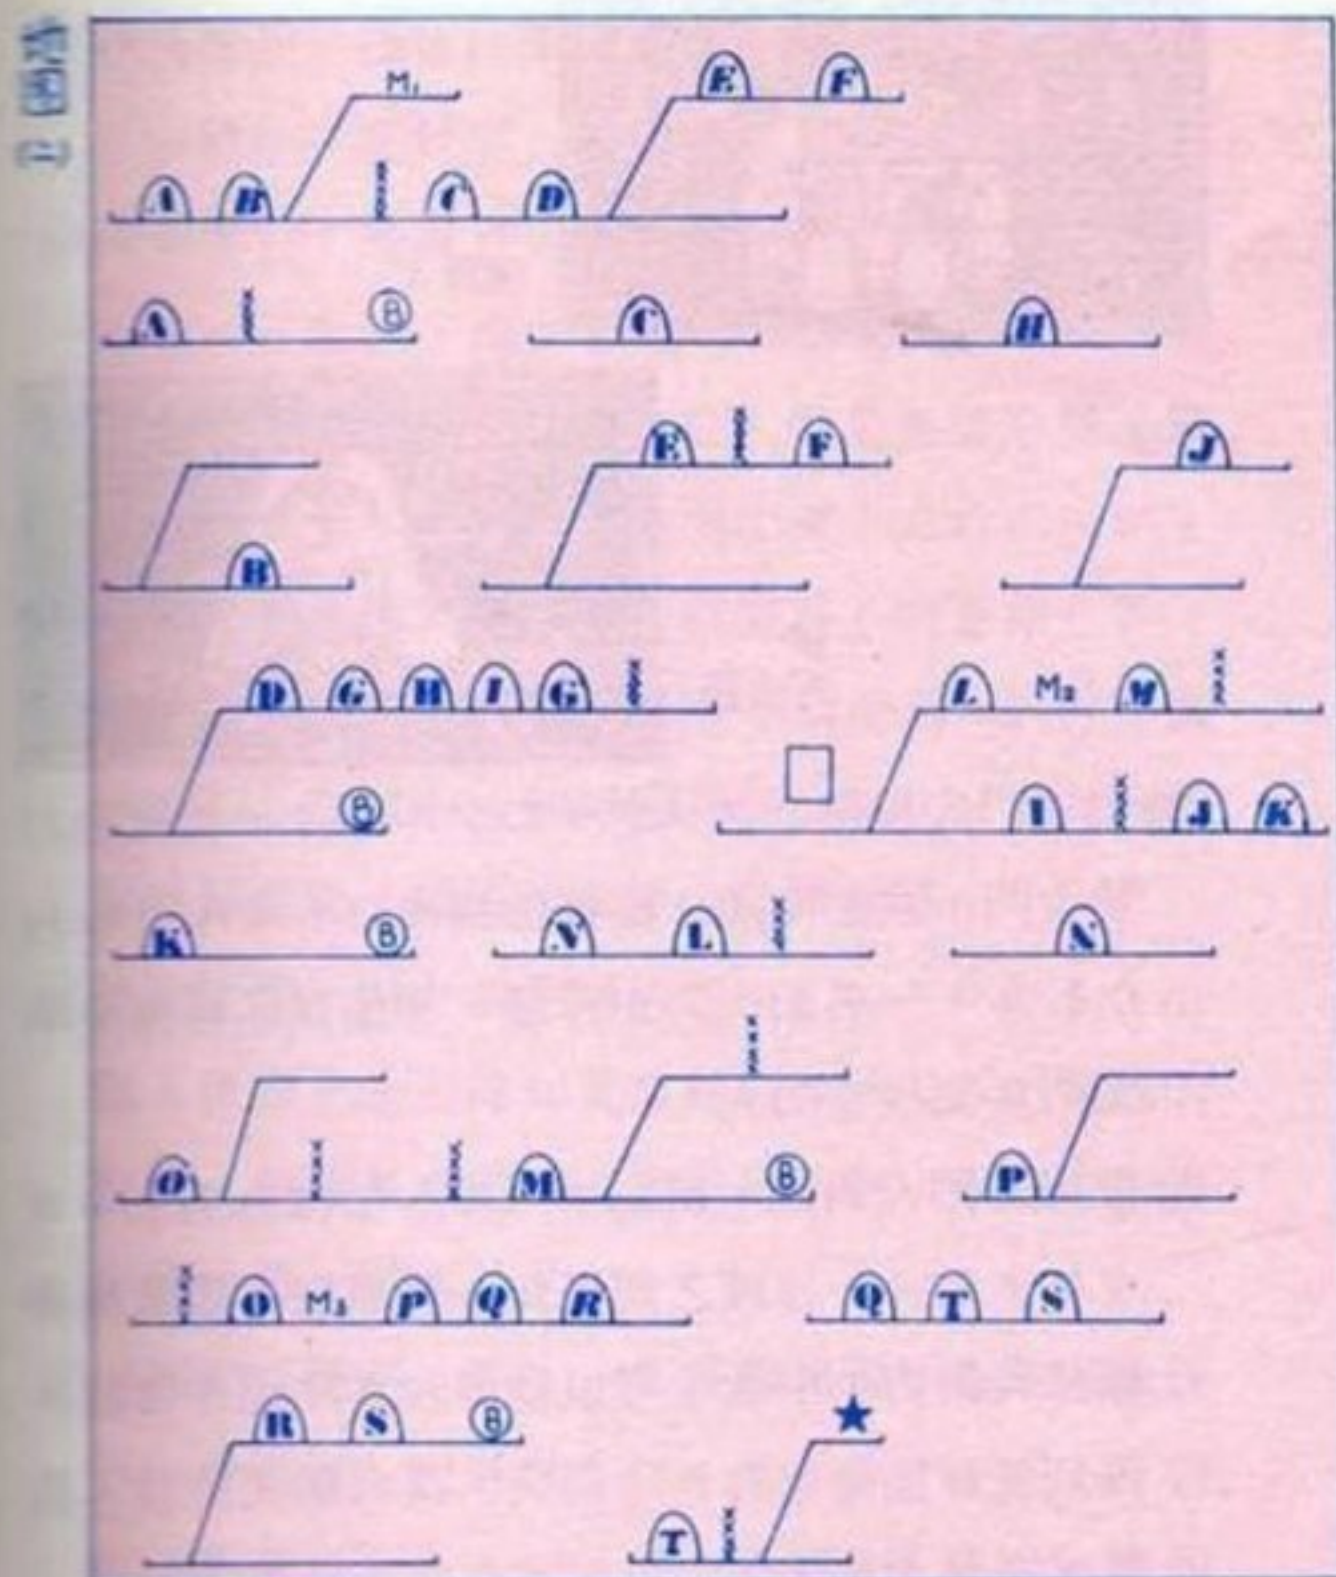 M₁ E F
A B C D
A B C H
E F J
B
D G H I G L M₂ M
B I J K
K B N L N
O M B P
O M₃ P Q R Q T S
R S B
T